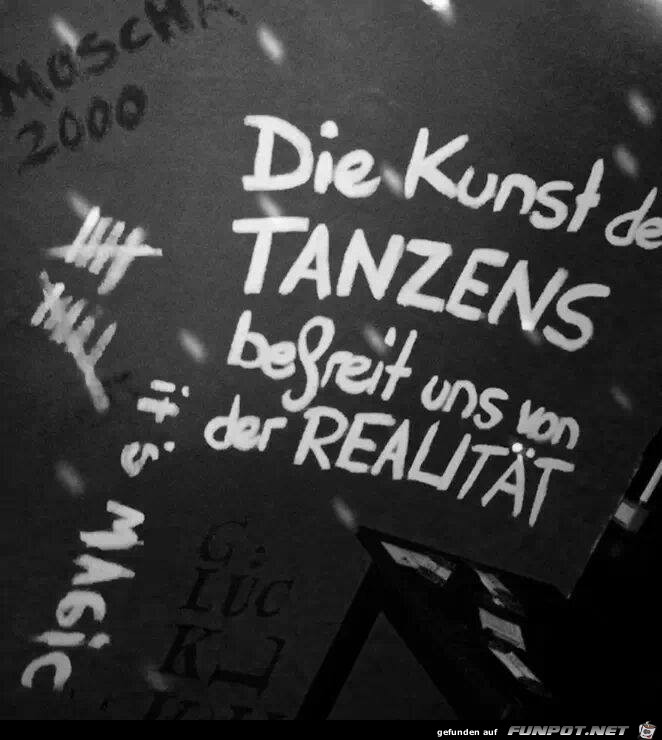 MOSCHA
2000
Die Kunst de
TANZENS
befreit uns von
der REALITÄT
it's MAGiC
G:
LÜC
K
gefunden auf FUNPOT.NET